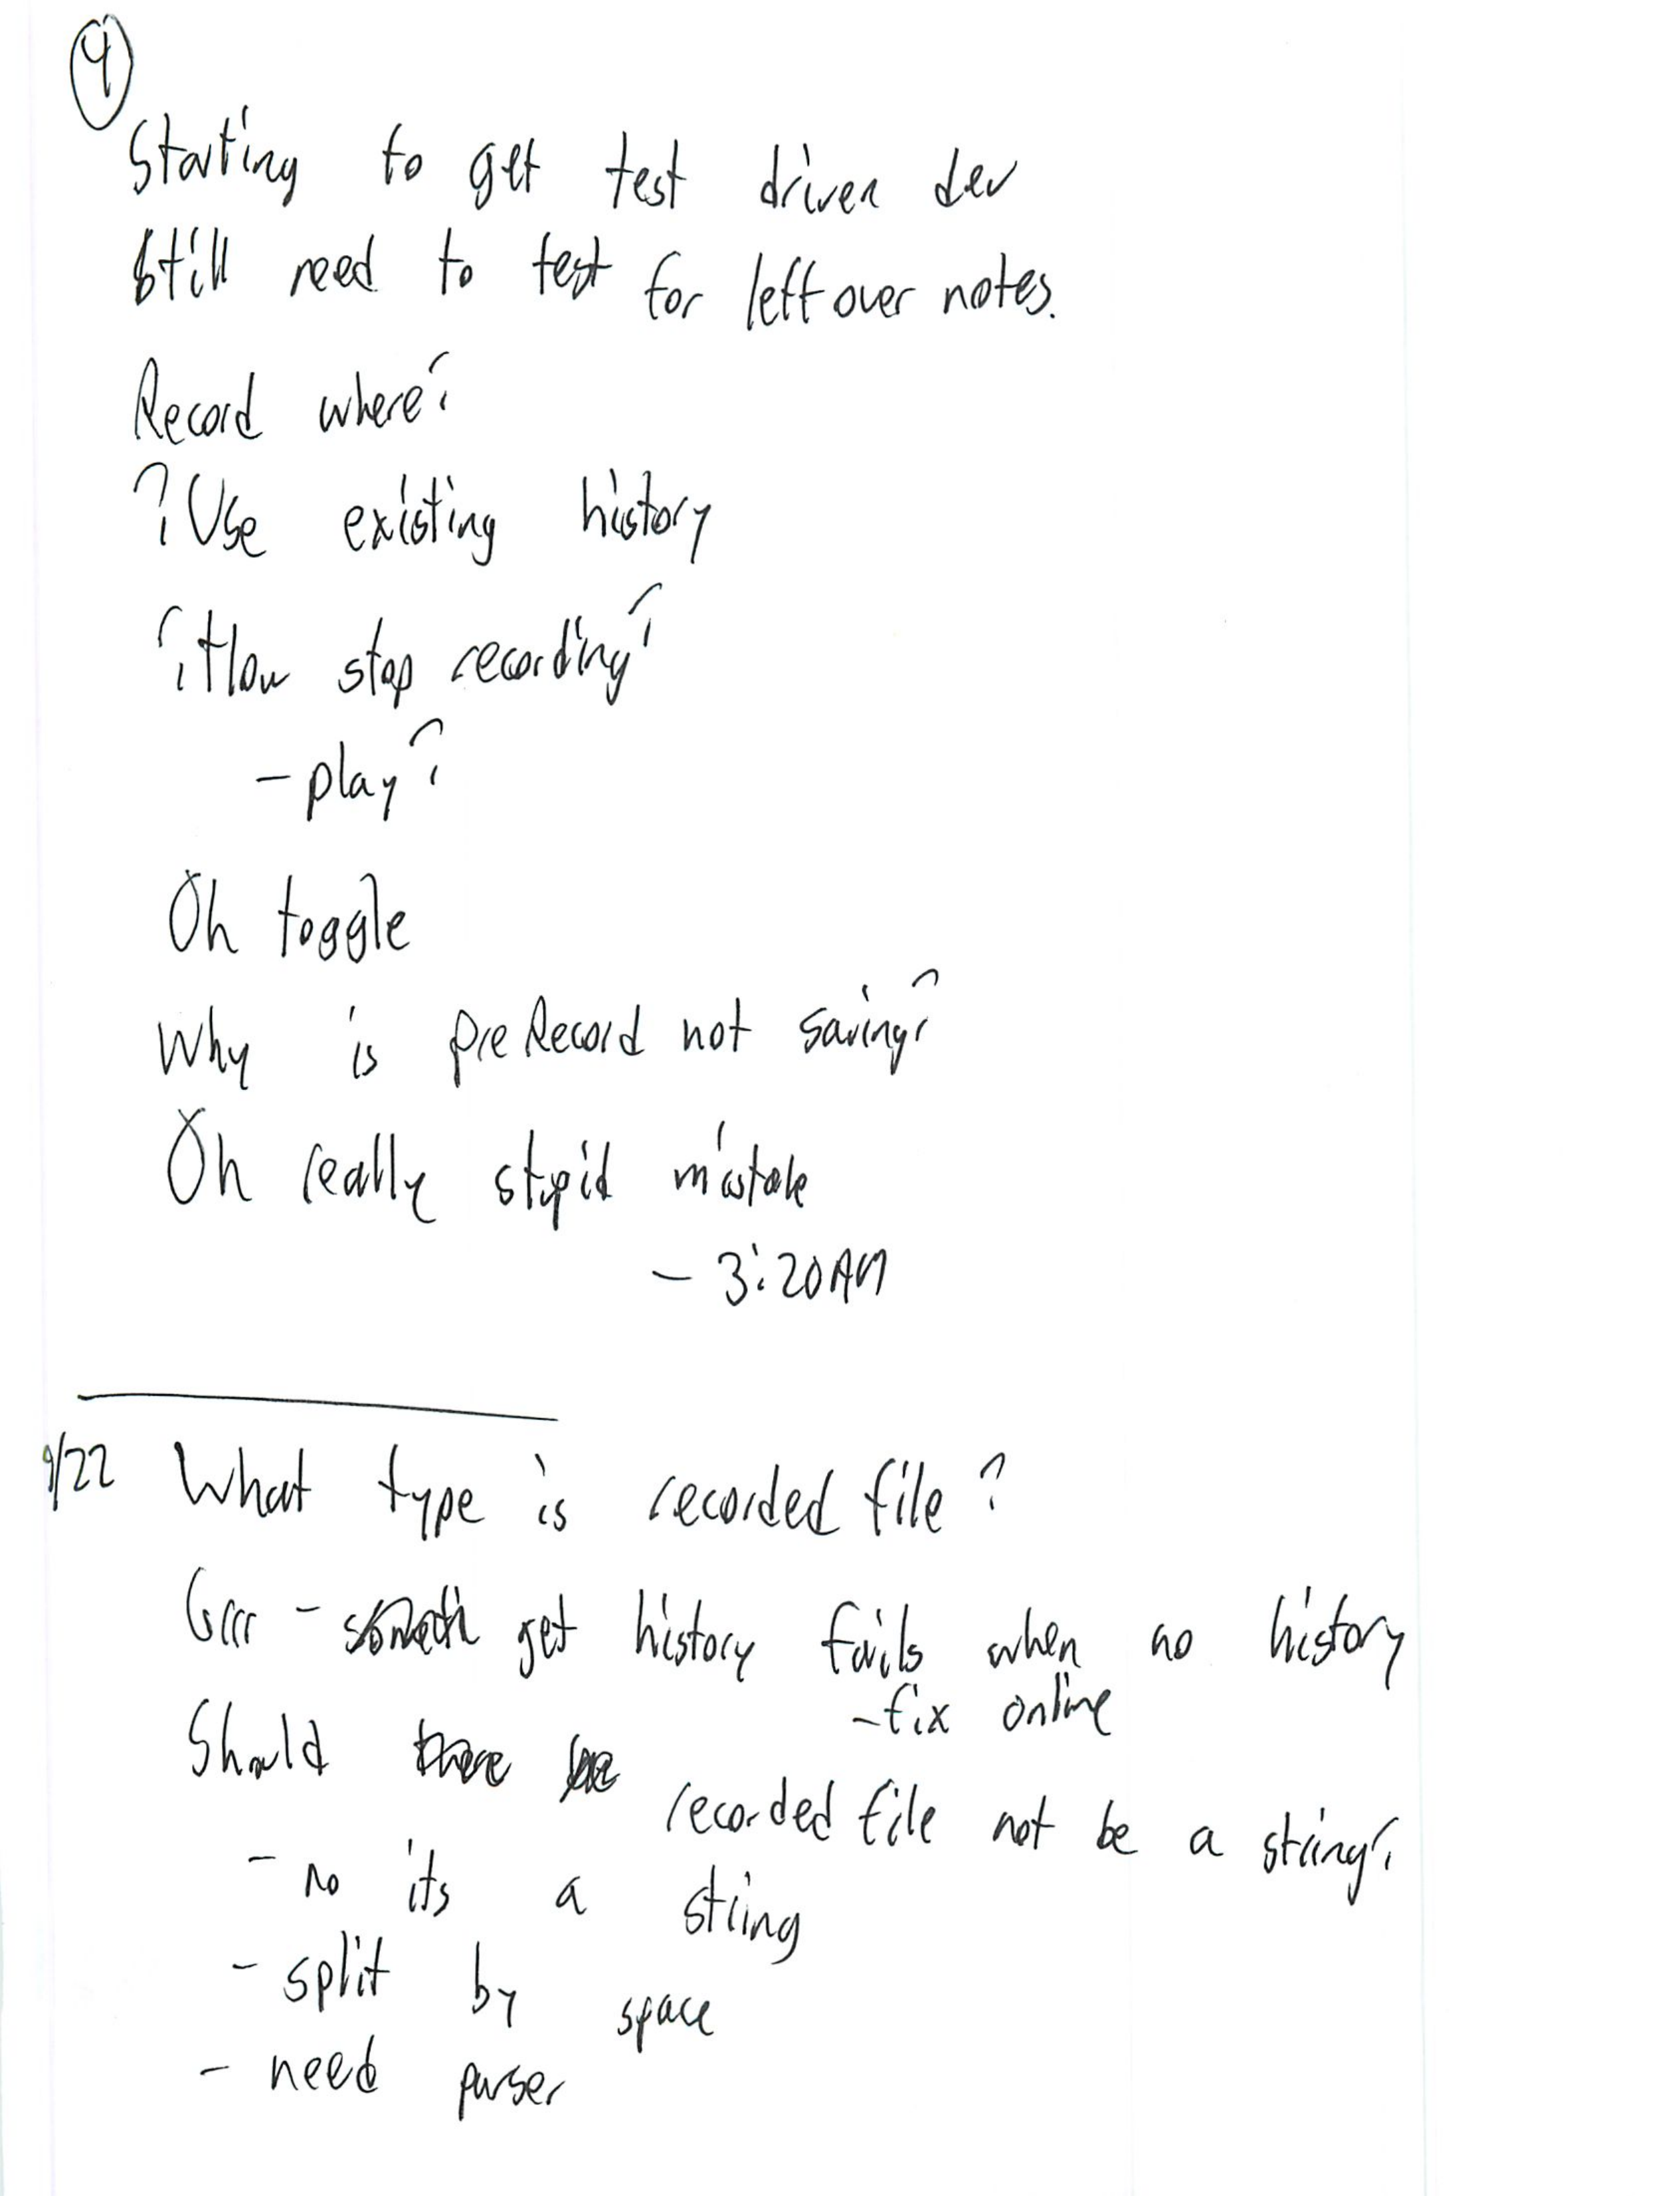 4
Starting to get test driven dev
Still need to test for left over notes.
Record where?
? Use existing history
? How stop recording?
- play?
Oh toggle
Why is preRecord not saving?
Oh really stupid mistake
- 3:20AM
9/22 What type is recorded file?
Grrr - get history fails when no history
- fix online
Should recorded file not be a string?
- no its a string
- split by space
- need parser